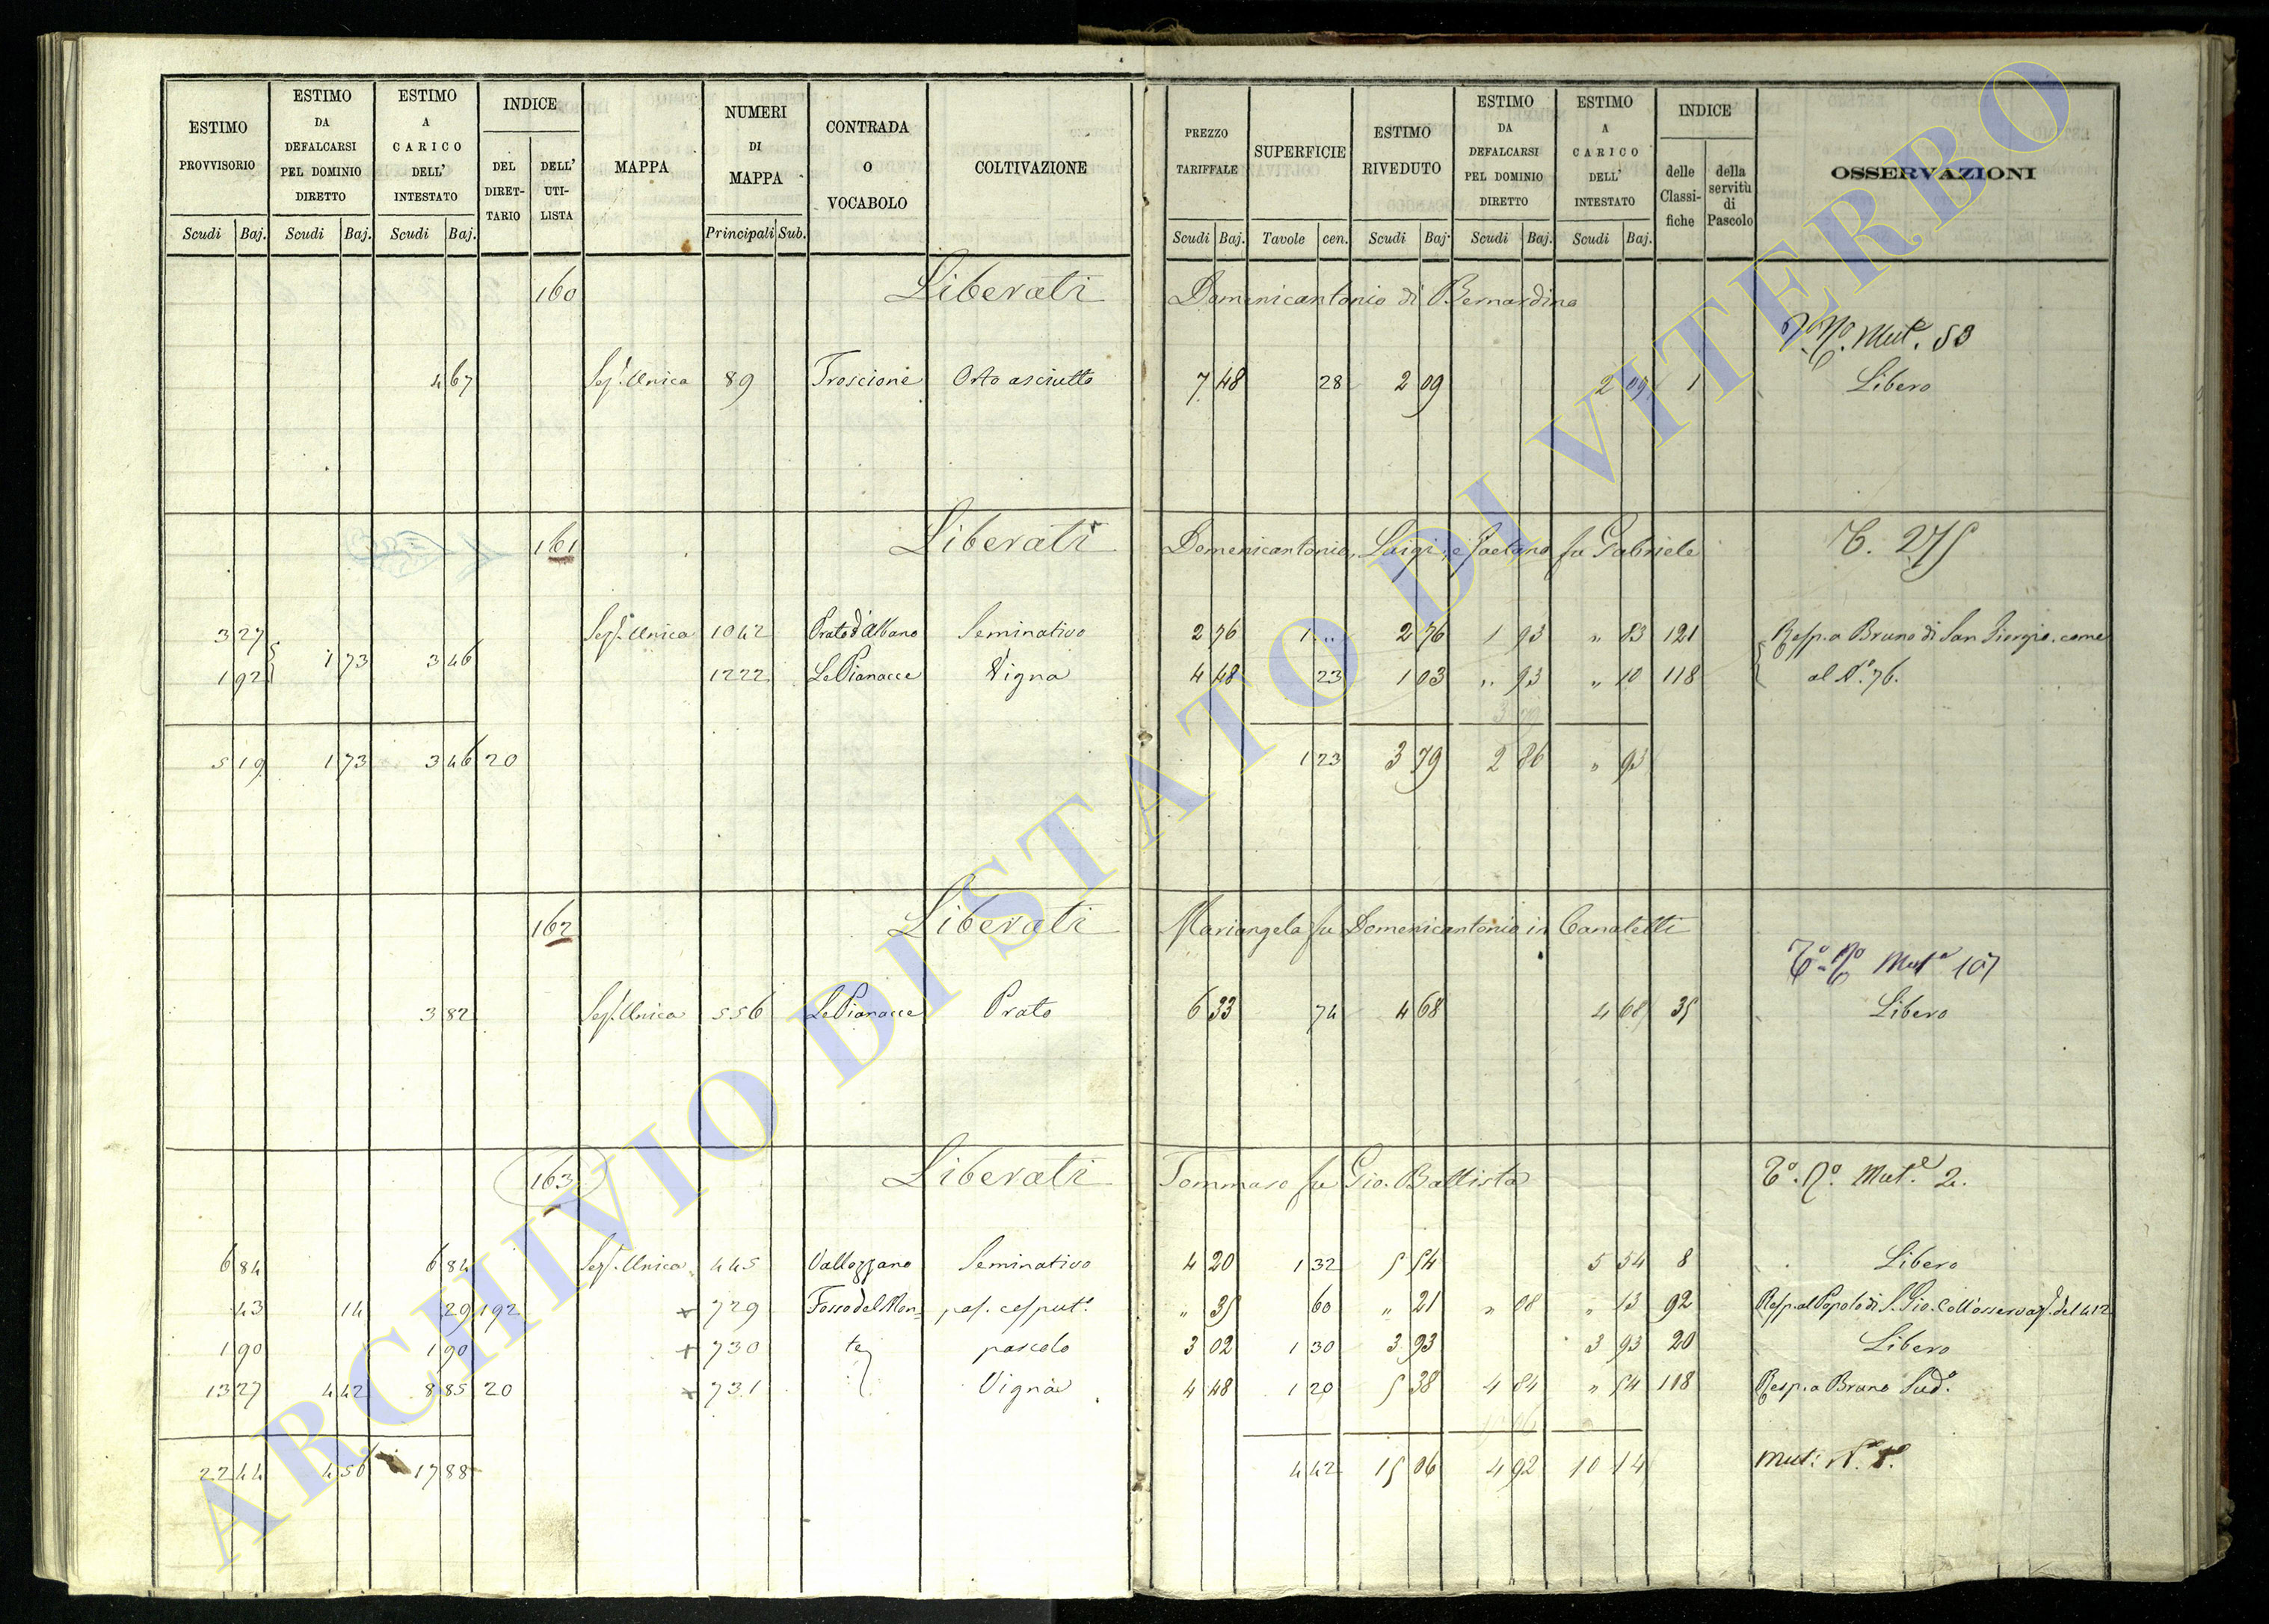 ESTIMO PROVVISORIO | ESTIMO DA DEFALCARSI PEL DOMINIO DIRETTO | ESTIMO A CARICO DELL' INTESTATO | INDICE | MAPPA | NUMERI DI MAPPA | CONTRADA O VOCABOLO | COLTIVAZIONE | PREZZO TARIFFALE | SUPERFICIE | ESTIMO RIVEDUTO | ESTIMO DA DEFALCARSI PEL DOMINIO DIRETTO | ESTIMO A CARICO DELL' INTESTATO | INDICE | OSSERVAZIONI
DEL DIRET-TARIO | DELL' UTI-LISTA | delle Classi-fiche | della servitù di Pascolo
Scudi | Baj. | Scudi | Baj. | Scudi | Baj. | Principali | Sub. | Scudi | Baj. | Tavole | cen. | Scudi | Baj. | Scudi | Baj. | Scudi | Baj.
160 Liberati Domenicantonio di Bernardino
Mut. 53
4 67 Sez. Unica 89 Troscione Orto asciutto 7 48 28 2 09 2 09 1 Libero
161 Liberati Domenicantonio, Luigi, e Gaetano fu Gabriele T. 275
3 27 Sez. Unica 1042 Prato d'Albano Seminativo 2 76 1 " 2 76 1 93 " 83 121 Resp. a Bruno di San Giorgio, come
1 92 1 73 3 46 1222 Le Pianacce Vigna 4 48 23 1 03 " 93 " 10 118 al N.° 76.
5 19 1 73 3 46 20 1 23 3 79 2 86 " 93
162 Liberati Mariangela fu Domenicantonio in Canaletti
Mut. 107
3 82 Sez. Unica 556 Le Pianacce Prato 6 33 74 4 68 4 68 35 Libero
163 Liberati Tommaso fu Gio. Battista Mut. 2.
6 84 6 84 Sez. Unica 445 Vallozzano Seminativo 4 20 1 32 5 54 5 54 8 Libero
43 14 29 192 x 729 Fosso del Mon- pas. cesput. " 35 60 " 21 " 08 " 13 92 Resp. al Popolo di S. Gio. Coll'osservaz. del 412
1 90 1 90 x 730 te pascolo 3 02 1 30 3 93 3 93 20 Libero
13 27 4 42 8 85 20 x 731 Vigna 4 48 1 20 5 38 4 84 " 54 118 Resp. a Bruno Sud.°
22 44 4 56 17 88 4 42 15 06 4 92 10 14 Mut: N.°
ARCHIVIO DI STATO DI VITERBO